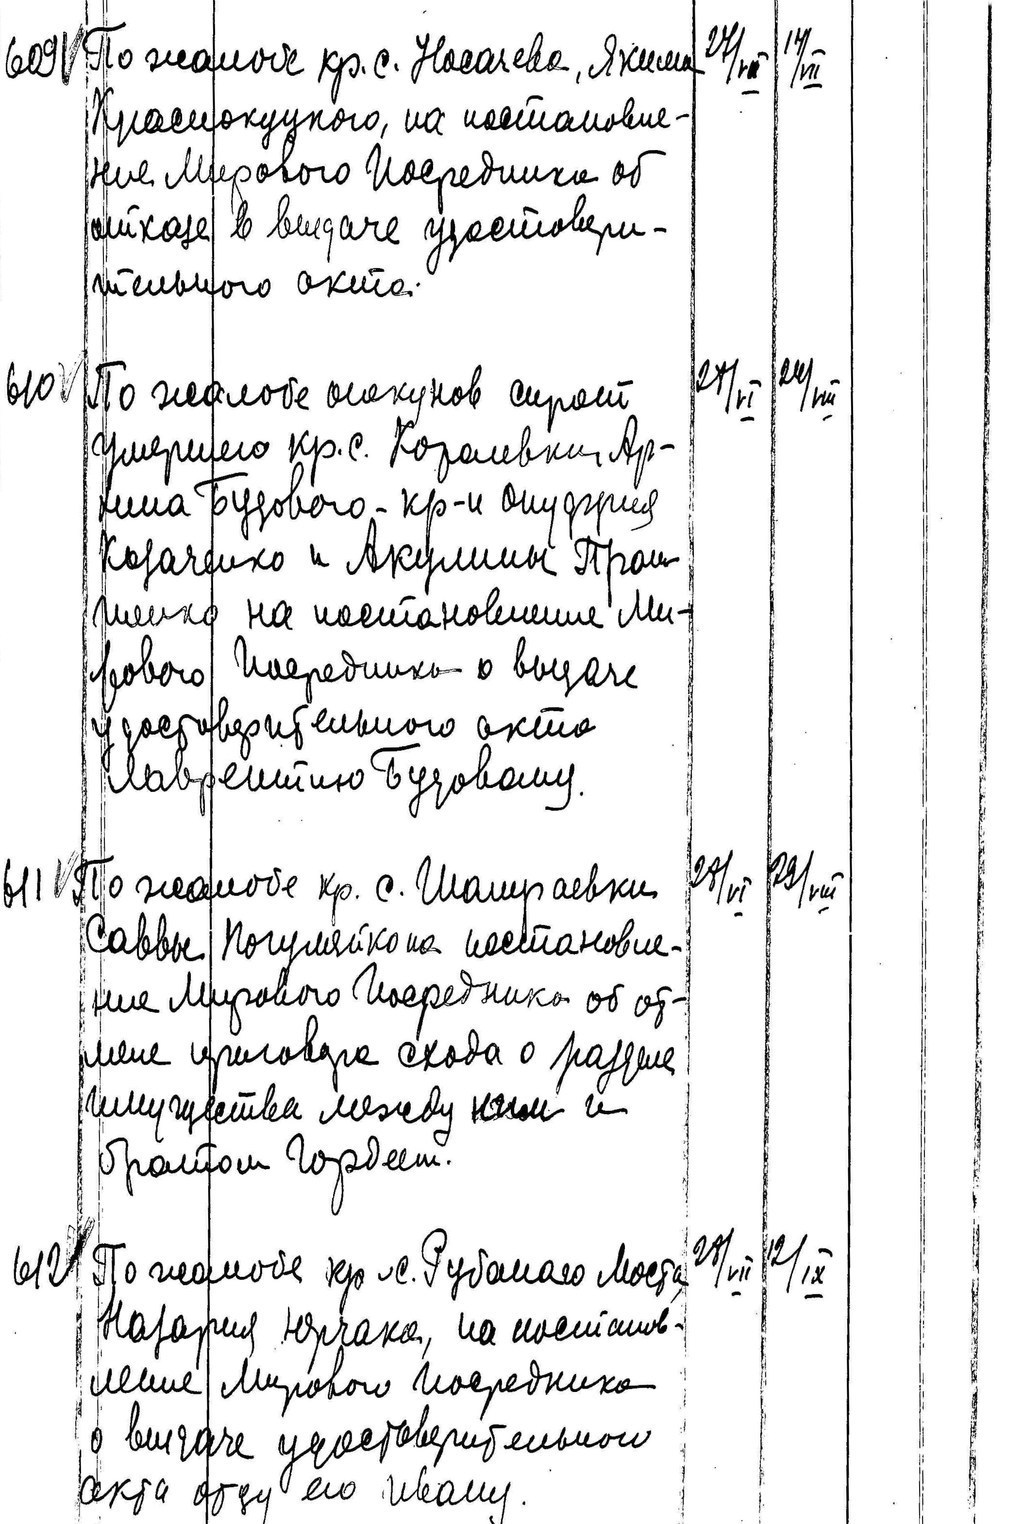 609 По жалобе кр. с. Носачева, Якима 27/VII 17/VII
Краснокуцкого, на постановле-
ние Мирового Посредника об
отказе в выдаче удостовери-
тельного акта.
610 По жалобе опекунов сирот 27/VI 24/VIII
умершего кр. с. Королевки Ар-
Будового - кр-н Онуфрия
Козаченко и Акулины
на постановление Ми-
рового Посредника о выдаче
удостоверительного акта
Лаврентию Будовому.
611 По жалобе кр. с. Шамраевки 28/VI 29/VIII
Саввы Погуляйко на постановле-
ние Мирового Посредника об от-
мене приговора схода о разделе
имущества между ним и
братом Гордеем.
612 По жалобе кр. с. Рубаного Моста, 28/VII 12/IX
Назария Юрчака, на постанов-
ление Мирового Посредника
о выдаче удостоверительного
акта отцу его Ивану.